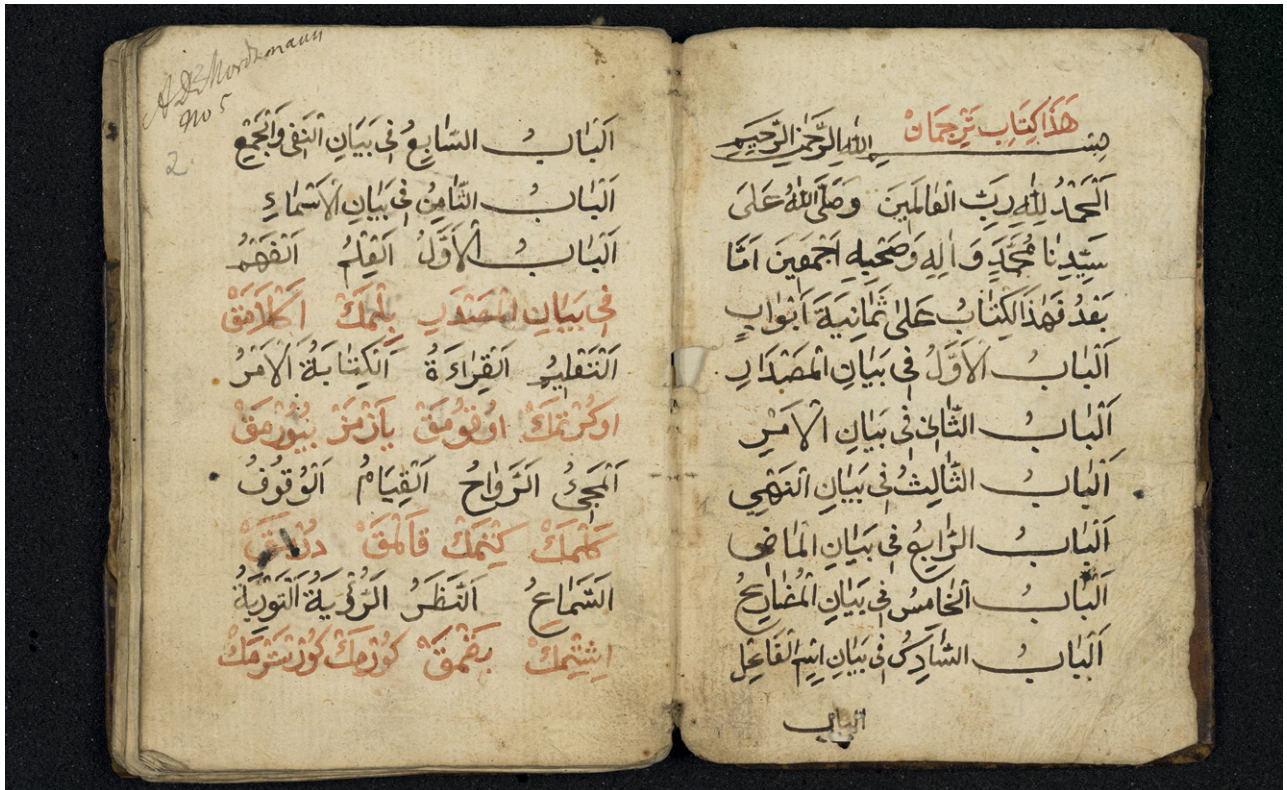 هَذَا كِتَابِ تَرْجَمَانْ
بِسْــمِ اللهِ الرَّحْمٰنِ الرَّحِيمِ
اَلْحَمْدُ لِلّٰهِ رَبِّ الْعَالَمِينَ وَصَلَّى اللهُ عَلَى
سَيِّدِنَا مُحَمَّدٍ وَاٰلِهِ وَصَحْبِهِ اَجْمَعِينَ اَمَّا
بَعْدُ فَهٰذَا الْكِتَابُ عَلىٰ ثَمَانِيَةَ اَبْوَابٍ
اَلْبَابُ الْاَوَّلُ فِى بَيَانِ الْمَصْدَارِ
اَلْبَابُ الثَّانِى فِى بَيَانِ الْاَمْرِ
اَلْبَابُ الثَّالِثُ فِى بَيَانِ النَّهْىِ
اَلْبَابُ الرَّابِعُ فِى بَيَانِ الْمَاضِى
اَلْبَابُ الْخَامِسُ فِى بَيَانِ الْمُضَارِعُ
اَلْبَابُ السَّادِسُ فِى بَيَانِ اسْمِ الْفَاعِلِ
الباب
A D Mordtmann
no 5
2
اَلْبَابُ السَّابِعُ فِى بَيَانِ النَّفْىِ وَالْجَمْعِ
اَلْبَابُ الثَّامِنُ فِى بَيَانِ الْاَسْمَاءِ
اَلْبَابُ الْاَوَّلُ اَلْعِلْمُ اَلْفَهْمُ
فِى بَيَانِ الْمَصْدَرِ بِلْمَكْ اَكْلَامَقْ
اَلتَّعْلِيمُ اَلْقِرَاءَةُ اَلْكِتَابَةُ اَلْاَمْرُ
اوكْرَتْمَكْ اوُقوُمَقْ يَازْمَقْ بُيُورْمَقْ
اَلْمَجِىءُ اَلرَّوَاحُ اَلْقِيَامُ اَلْوُقُوفُ
كَلْمَكْ كِتْمَكْ قَالْمَقْ
اَلسَّمَاعُ اَلنَّظَرُ اَلرُّؤْيَةُ اَلتَّوْرِيَةُ
اِشِتْمَكْ بَقْمَقْ كُورْمَكْ كُوزَسْتَرْمَكْ